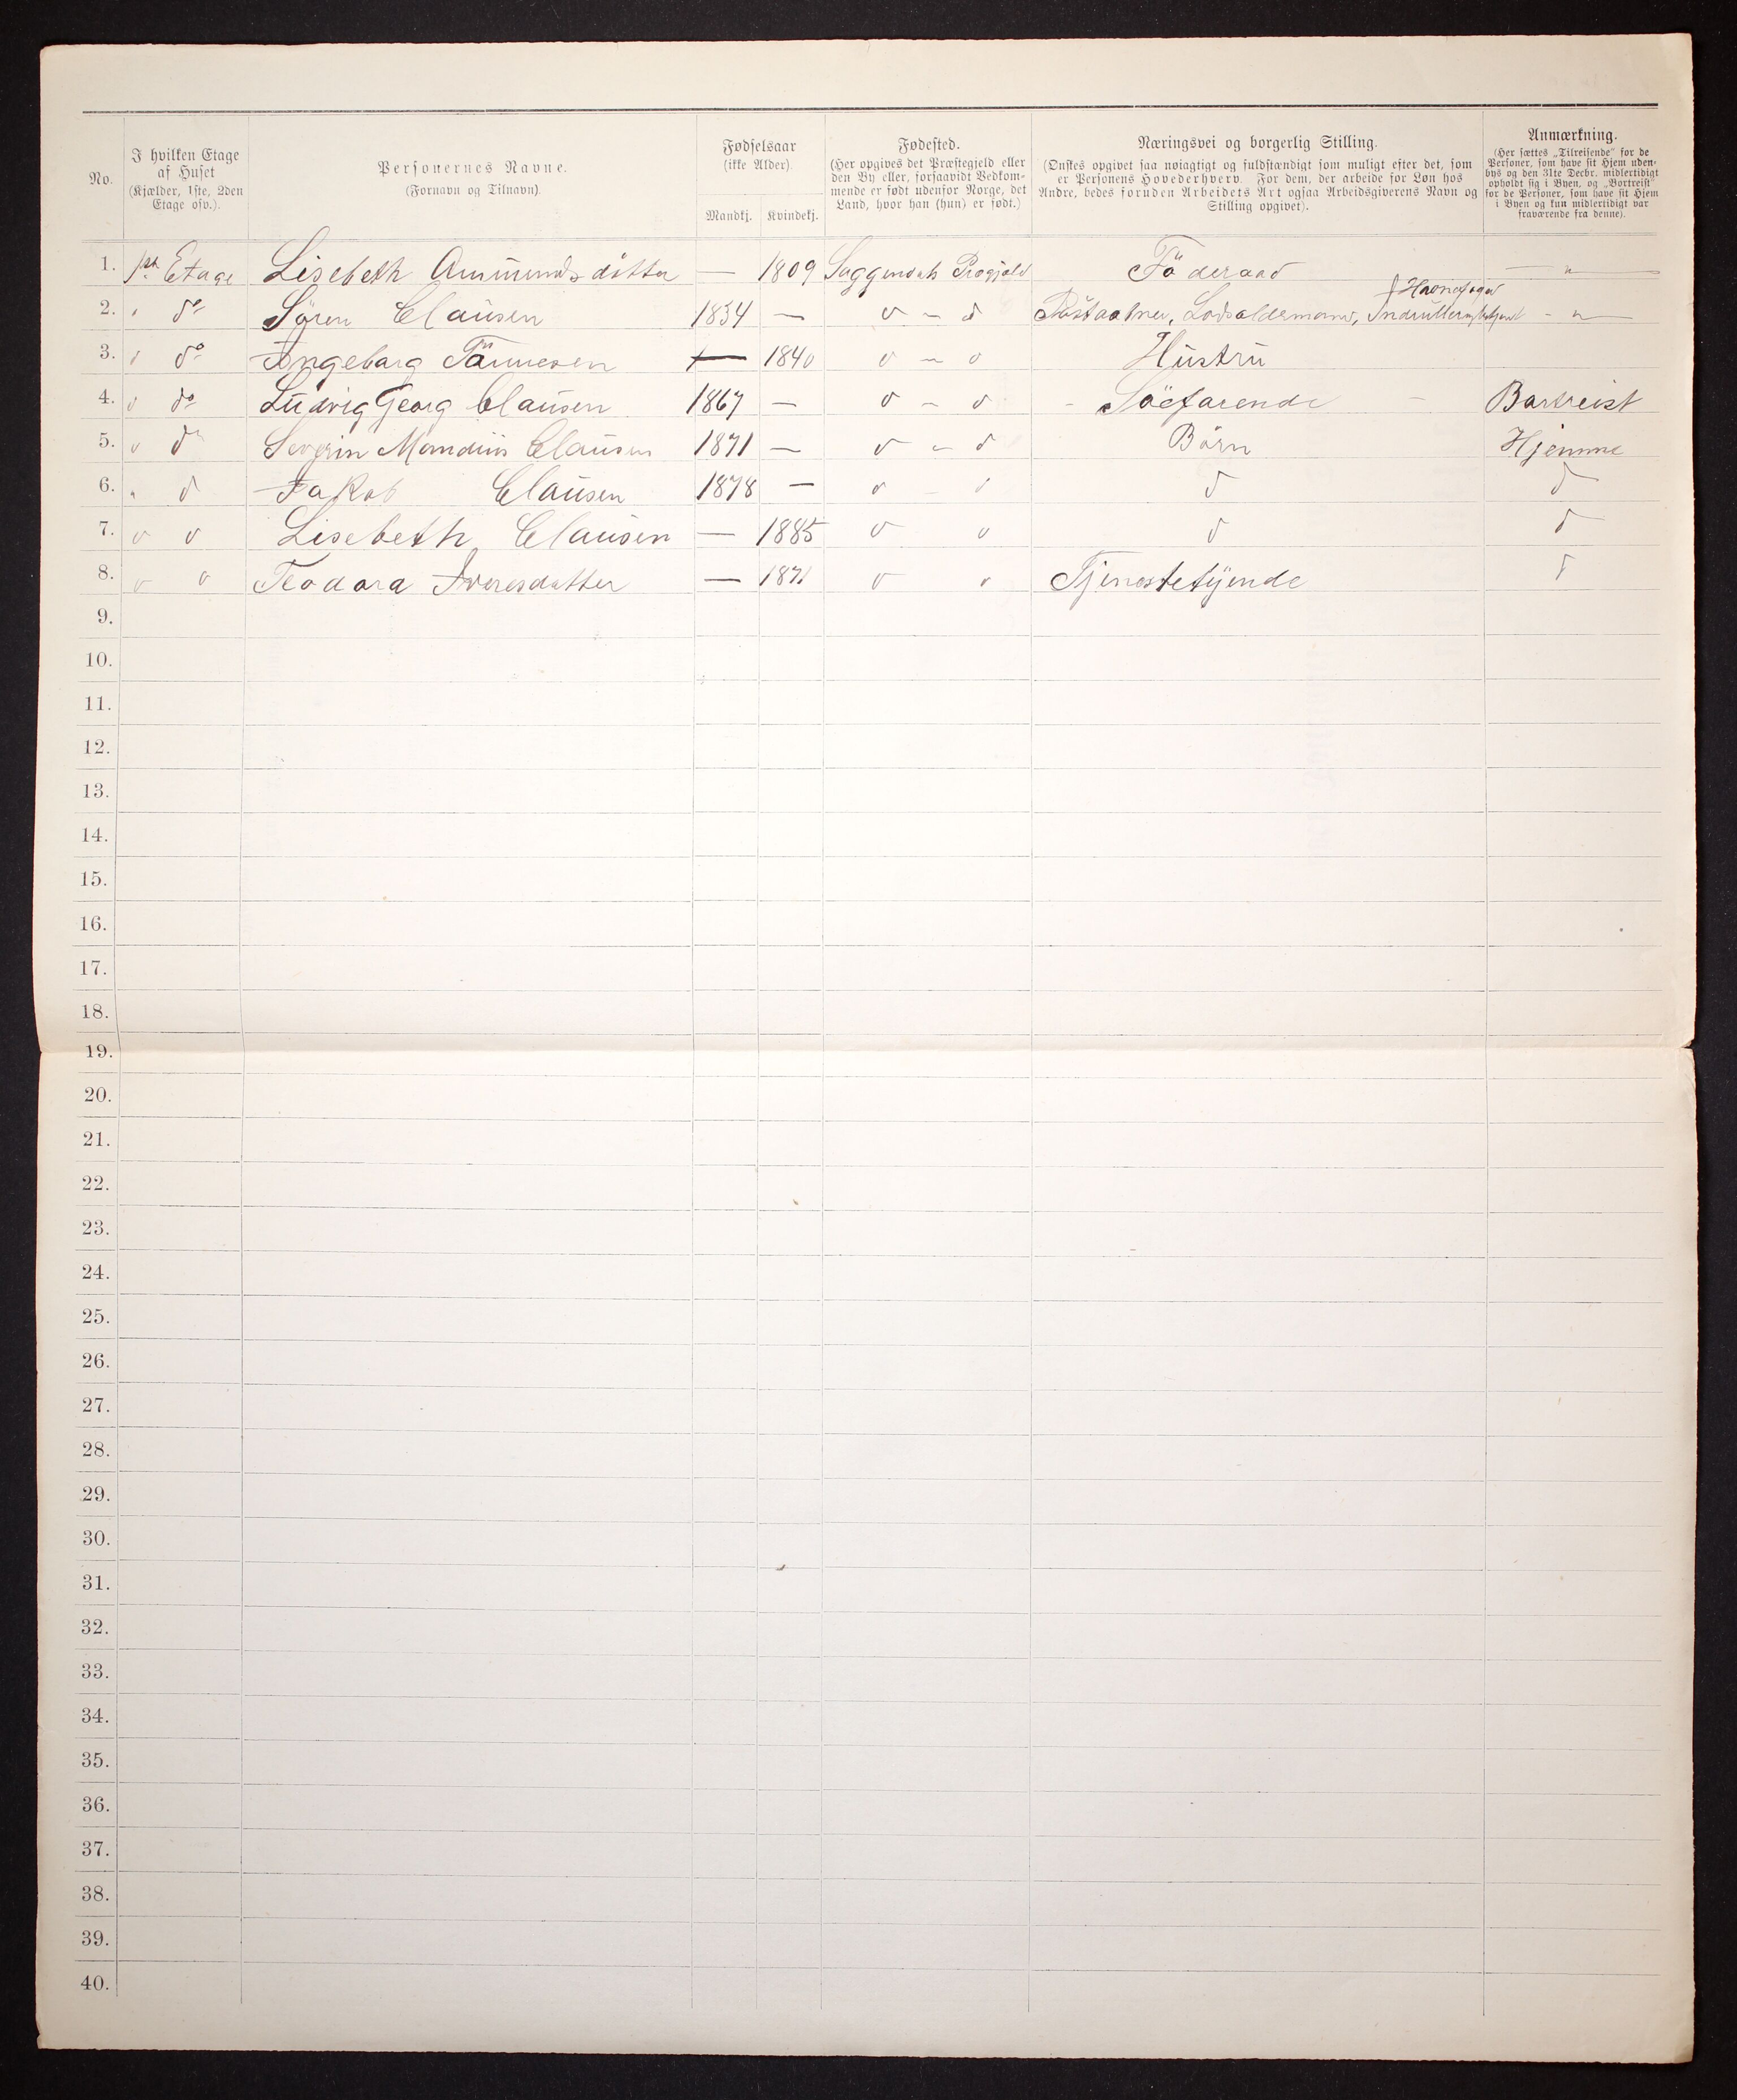 No.
I hvilken Etage
af Huset
(Kjælder, 1ste, 2den
Etage osv.).
Personernes Navne.
(Fornavn og Tilnavn).
Fødselsaar
(ikke Alder).
Mandkj. Kvindekj.
Fødested.
(Her opgives det Præstegjeld eller
den By eller, forsaavidt Vedkom-
mende er født udenfor Norge, det
Land, hvor han (hun) er født.)
Næringsvei og borgerlig Stilling.
(Ønskes opgivet saa nøiagtigt og fuldstændigt som muligt efter det, som
er Personens Hovederhverv. For dem, der arbeide for Løn hos
Andre, bedes foruden Arbeidets Art ogsaa Arbeidsgiverens Navn og
Stilling opgivet).
Anmærkning.
(Her sættes „Tilreisende" for de
Personer, som have sit Hjem uden-
bys og den 31te Decbr. midlertidigt
opholdt sig i Byen, og „Bortreist"
for de Personer, som have sit Hjem
i Byen og kun midlertidigt var
fraværende fra denne).
1. 1ste Etage Lisebeth Ammunds dötter — 1809 Saggendals Prægjeld Föderaad — " —
Havnefoged
2. " do Sören Clausen 1834 — " — d Postaabner, Lodsoldermand, - " —
3. " do Ingeborg Tönnesen — 1840 " — " Hustru
4. " do Ludvig Georg Clausen 1867 — " — " - Söefarende - Bortreist
5. " do Severin Mandius Clausen 1871 — " — d Börn Hjemme
6. " d Jakob Clausen 1878 — " — " d d
7. " " Lisebeth Clausen — 1885 " " d d
8. " " Teodora Iversdatter — 1871 " " Tjenestetyende d
9.
10.
11.
12.
13.
14.
15.
16.
17.
18.
19.
20.
21.
22.
23.
24.
25.
26.
27.
28.
29.
30.
31.
32.
33.
34.
35.
36.
37.
38.
39.
40.